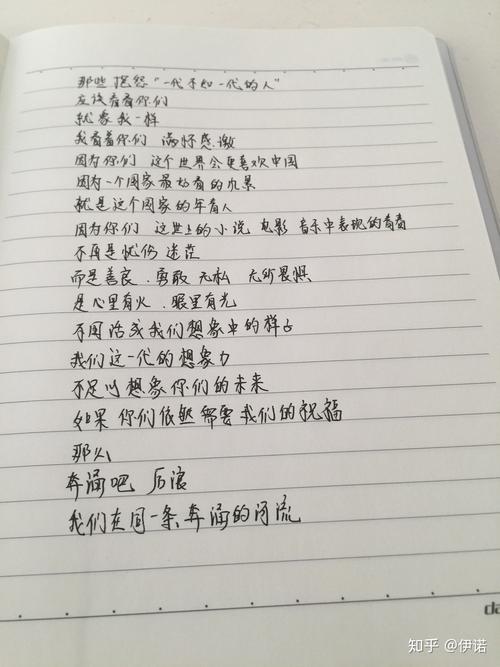 那些抱怨“一代不如一代的人”
应该看看你们
就象我一样
我看着你们 满怀感激
因为你们 这个世界会更喜欢中国
因为一个国家最好看的风景
就是这个国家的年青人
因为你们 这世上的小说 电影 音乐中表现的青春
不再是忧伤 迷茫
而是善良、勇敢 无私 无所畏惧
是心里有火、眼里有光
不用活成我们想象中的样子
我们这一代的想象力
不足以想象你们的未来
如果你们依然需要我们的祝福
那么
奔涌吧 后浪
我们在同一条奔涌的河流
da
知乎 @伊诺